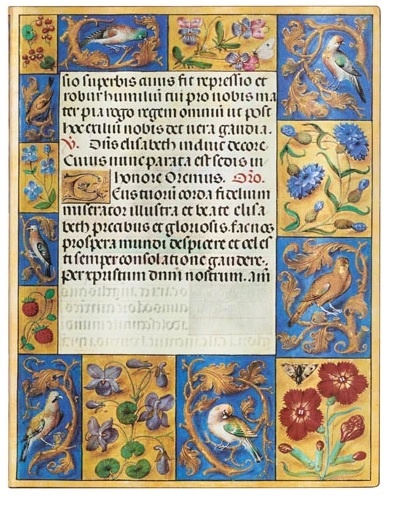 sio superbis cuius fit repressio et
robur humiliū tui pro nobis ma
ter pia rogo regem omniū ut post
hoc exiliū nobis det vera gaudia.
V. Dn̄s elisabeth induit decore.
Cuius nunc parata est sedis in
honore Oremus. Oro.
Eus tuorū corda fidelium
miserator illustra et beate elisa
beth precibus et gloriosis fac nos
prospera mundi despicere et celes
ti semper consolatione gaudere.
per xpristum dnm nostrum. am